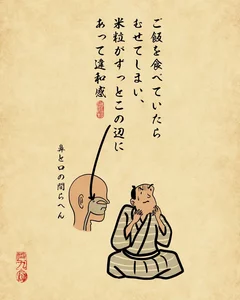 ご飯を食べていたら
むせてしまい、
米粒がずっとこの辺に
あって違和感
鼻と口の間らへん